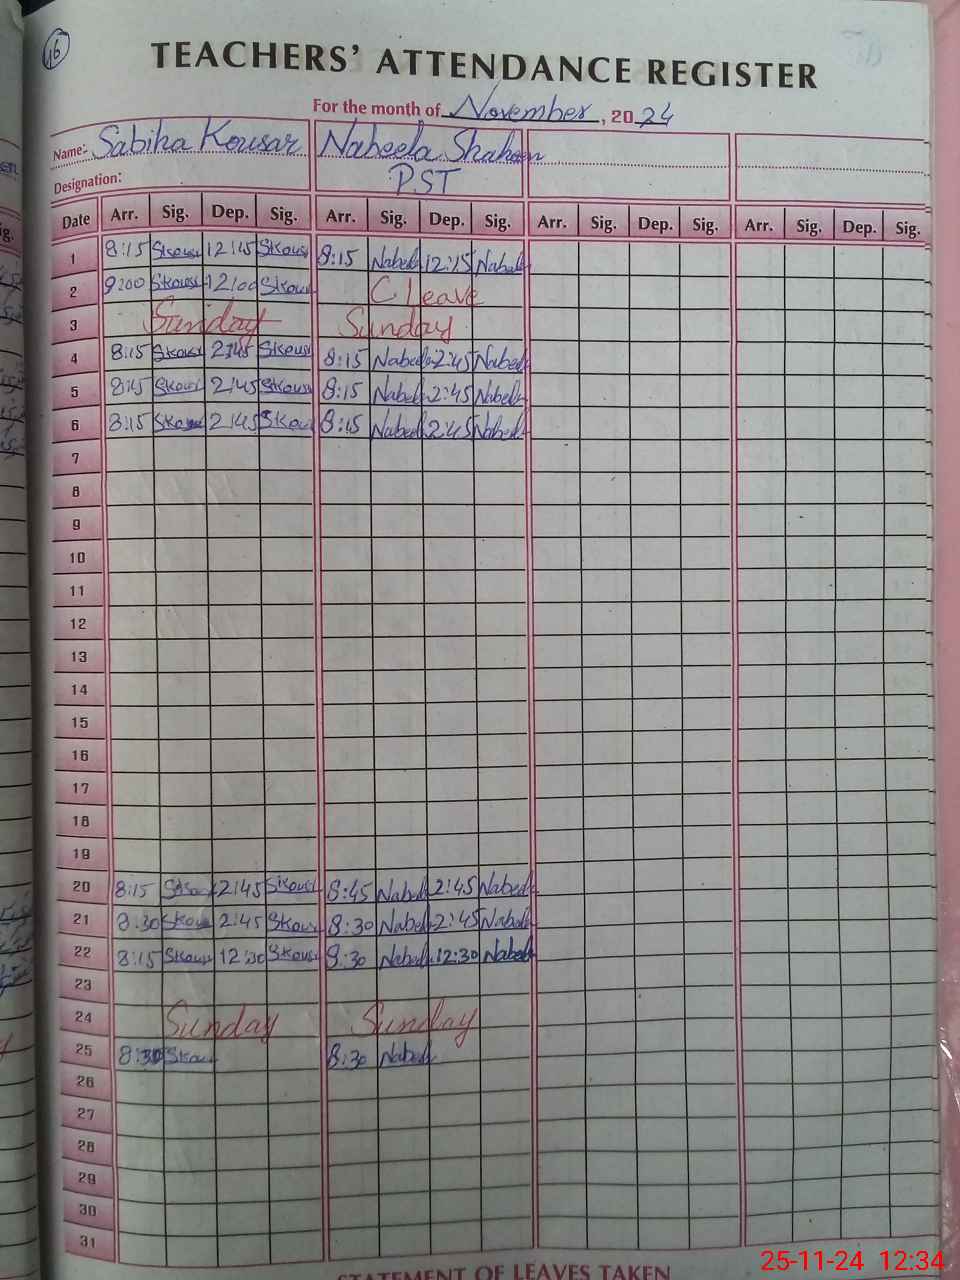 16
TEACHERS' ATTENDANCE REGISTER
For the month of November, 2024
Name:- Sabiha Kousar Nabeela Shaheen
Designation: P.ST
Date Arr. Sig. Dep. Sig. Arr. Sig. Dep. Sig. Arr. Sig. Dep. Sig. Arr. Sig. Dep. Sig.
1 8:15 Skousr 12:45 Skousr 8:15 Nabeel 12:15 Nabeel
2 9:00 Skousr 12:00 Skousr C Leave
3 Sunday Sunday
4 8:15 Skousr 2:45 Skousr 8:15 Nabeel 2:45 Nabeel
5 8:15 Skousr 2:45 Skousr 8:15 Nabeel 2:45 Nabeel
6 8:15 Skousr 2:45 Skousr 8:15 Nabeel 2:45 Nabeel
7
8
9
10
11
12
13
14
15
16
17
18
19
20 8:15 Skousr 2:45 Skousr 8:45 Nabeel 2:45 Nabeel
21 8:30 Skousr 2:45 Skousr 8:30 Nabeel 2:45 Nabeel
22 8:15 Skousr 12:30 Skousr 8:30 Nabeel 12:30 Nabeel
23
24 Sunday Sunday
25 8:30 Skousr 8:30 Nabeel
26
27
28
29
30
31
STATEMENT OF LEAVES TAKEN
25-11-24 12:34